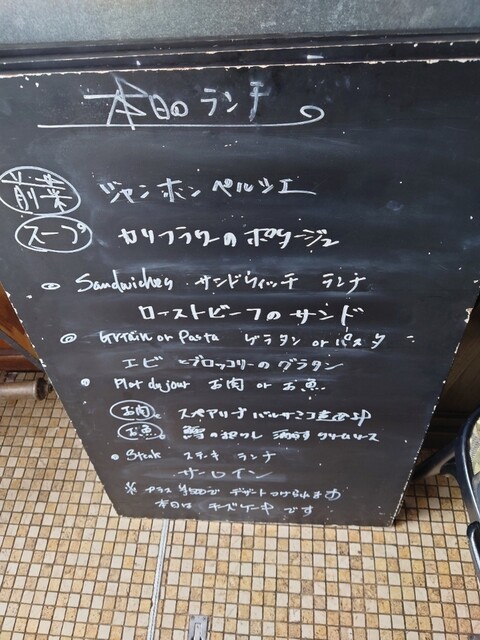 本日の ランチ
前菜 ジャンボン ペルシエ
スープ カリフラワーの ポタージュ
Sandwiches サンドウィッチ ランチ
ローストビーフの サンド
Gratin or Pasta グラタン or パスタ
エビ とブロッコリーの グラタン
Plat du jour お肉 or お魚
お肉 スペアリブ バルサミコ
お魚 クリームソース
Steak ステーキ ランチ
サーロイン
※ プラス で デザート つけられます
本日は チーズケーキ です